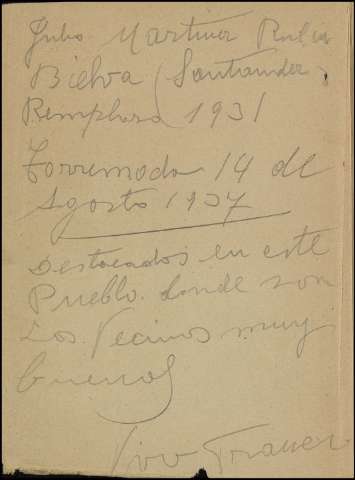 Julio Martinez Rubin
Bielva (Santander)
Remplazo 1931
Torremocha 14 de
Agosto 1937
Destacados en este
Pueblo. donde son
Los Vecinos muy
buenos
Viva Franco